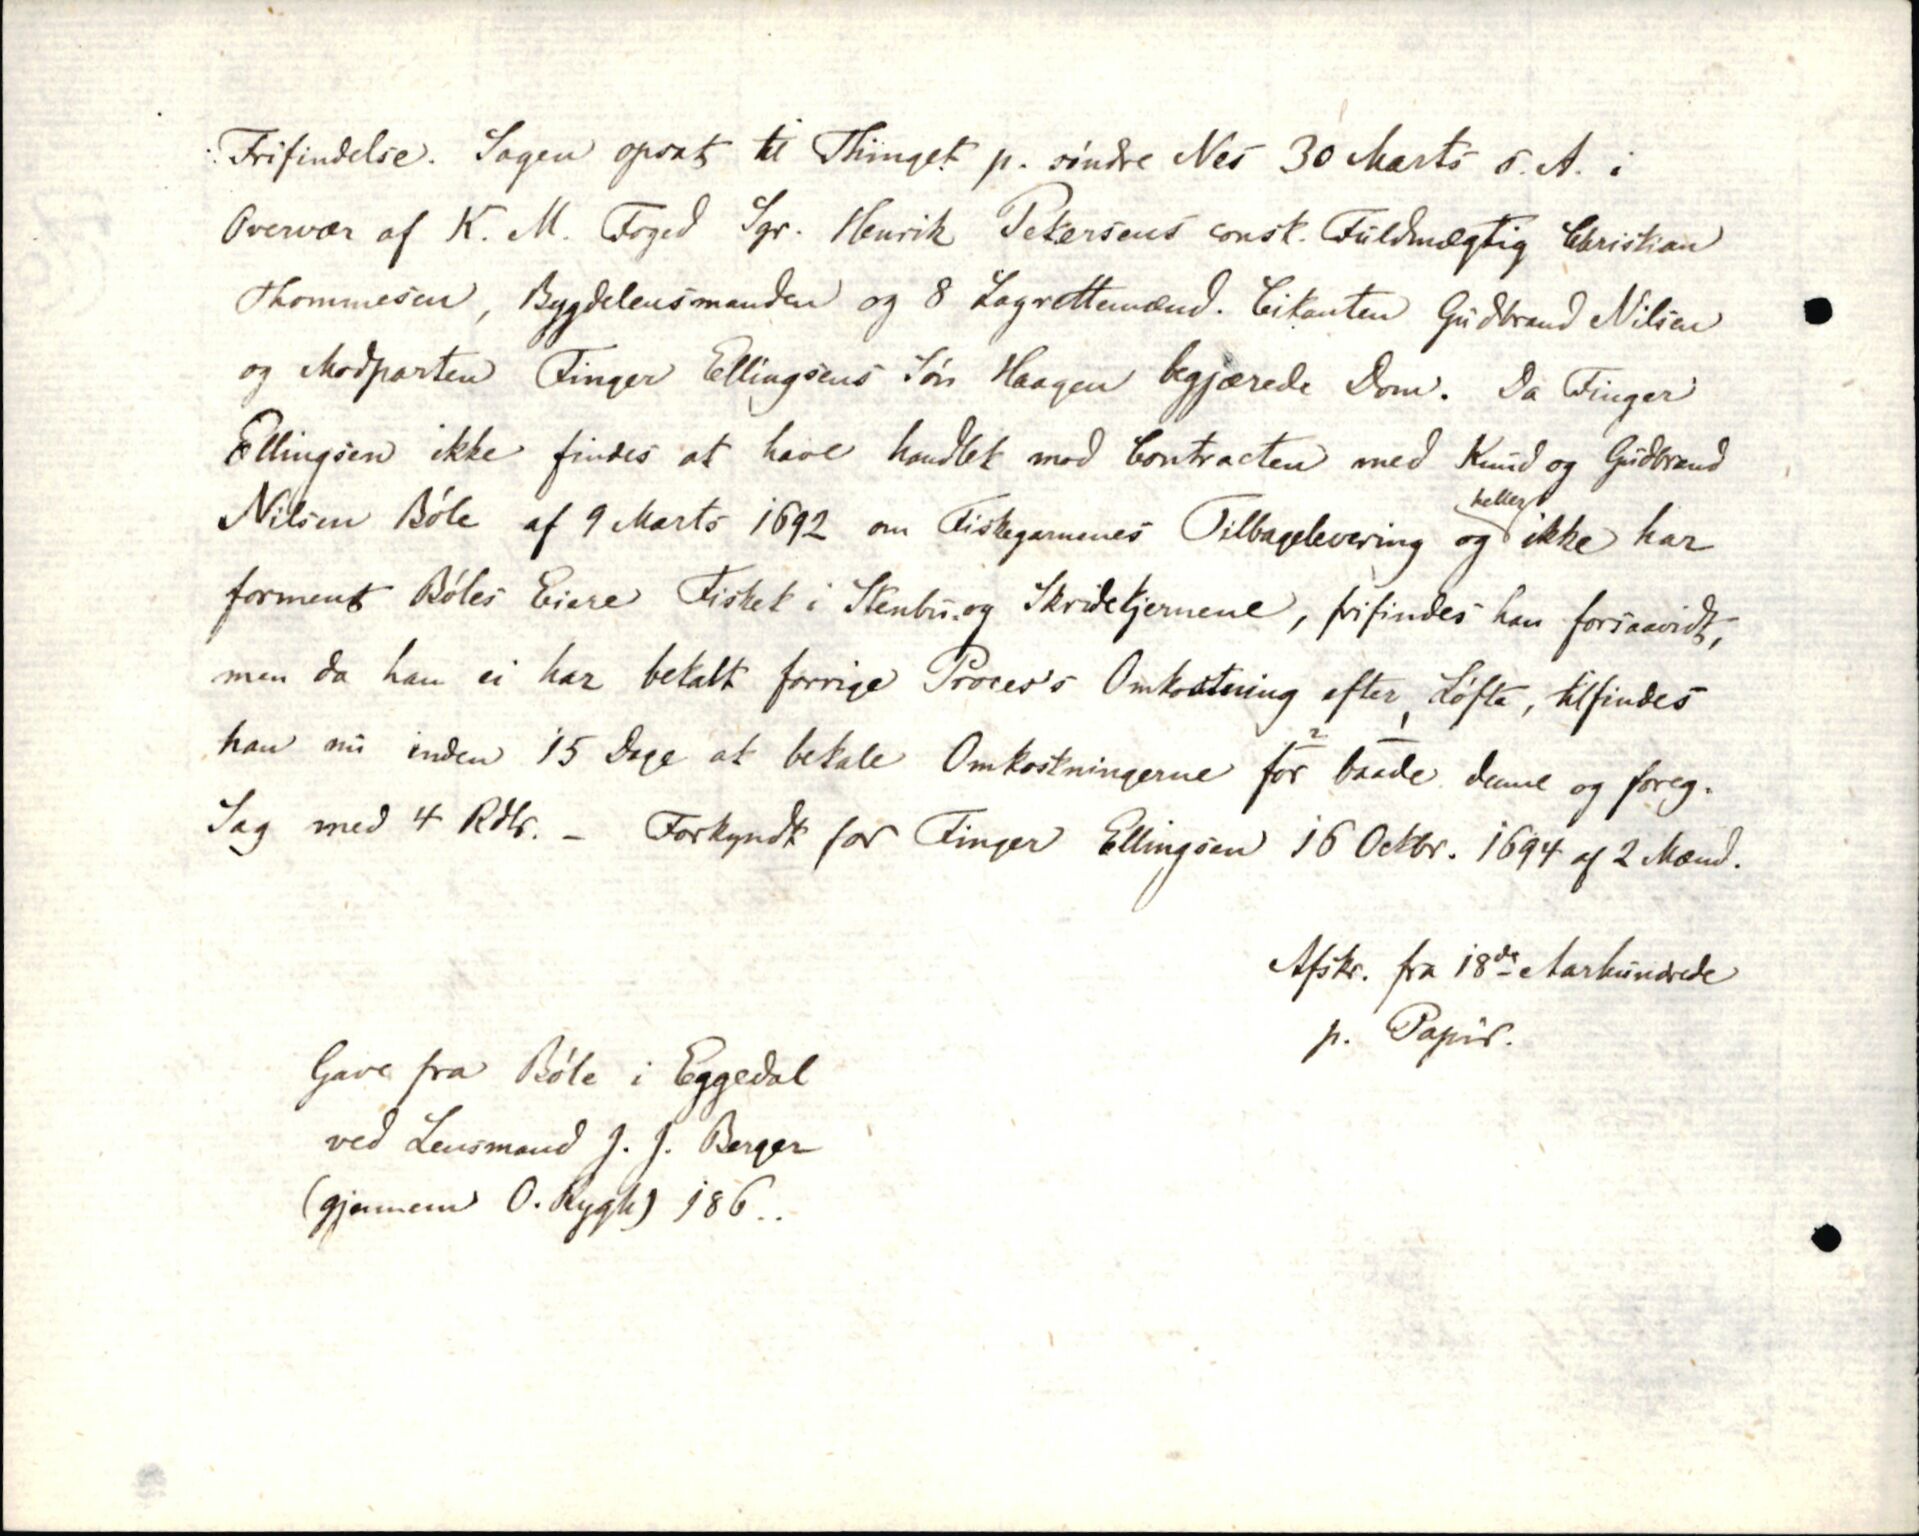 Frifindelse. Sagen opsat til Thinget p. söndre Nes 30 Marts s. A. i
Overvær af K. M. Foged Sgr. Henrik Petersens const. Fuldmægtig Christian
Thommesen, Bygdelensmanden og 8 Lagrettemænd. Citanten Gudbrand Nilsen
og Modparten Finger Ellingsens Sön Haagen begjærede Dom. Da Finger
Ellingsen ikke findes at have handlet mod Contracten med Knud og Gudbrand
Nilsen Böle af 9 Marts 1692 om Fiskegarnenes Tilbagelevering og heller ikke har
forment Böles Eiere Fisket i Stenbu- og Skridetjernene, frifindes han forsaavidt,
men da han ei har betalt forrige Proces's Omkostning efter Löfte, tilfindes
han nu inden 15 Dage at betale Omkostningerne for baade denne og foreg.
Sag med 4 Rdlr. – Forkyndt for Finger Ellingsen 16 Octbr. 1694 af 2 Mænd.
Afskr. fra 18de Aarhundrede
p. Papir.
Gave fra Böle i Eggedal
ved Lensmand J. J. Berger
(gjennem O. Rygh) 186..